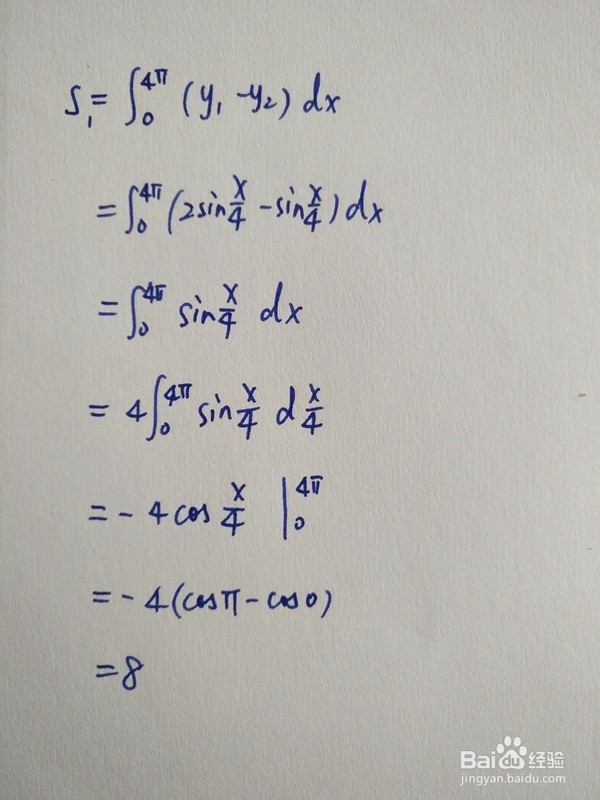 S₁ = ∫₀^4π (y₁ - y₂) dx
= ∫₀^4π (2sin x/4 - sin x/4) dx
= ∫₀^4π sin x/4 dx
= 4∫₀^4π sin x/4 d x/4
= - 4 cos x/4 |₀^4π
= - 4 (cosπ - cos0)
= 8
Baidu经验
jingyan.baidu.com